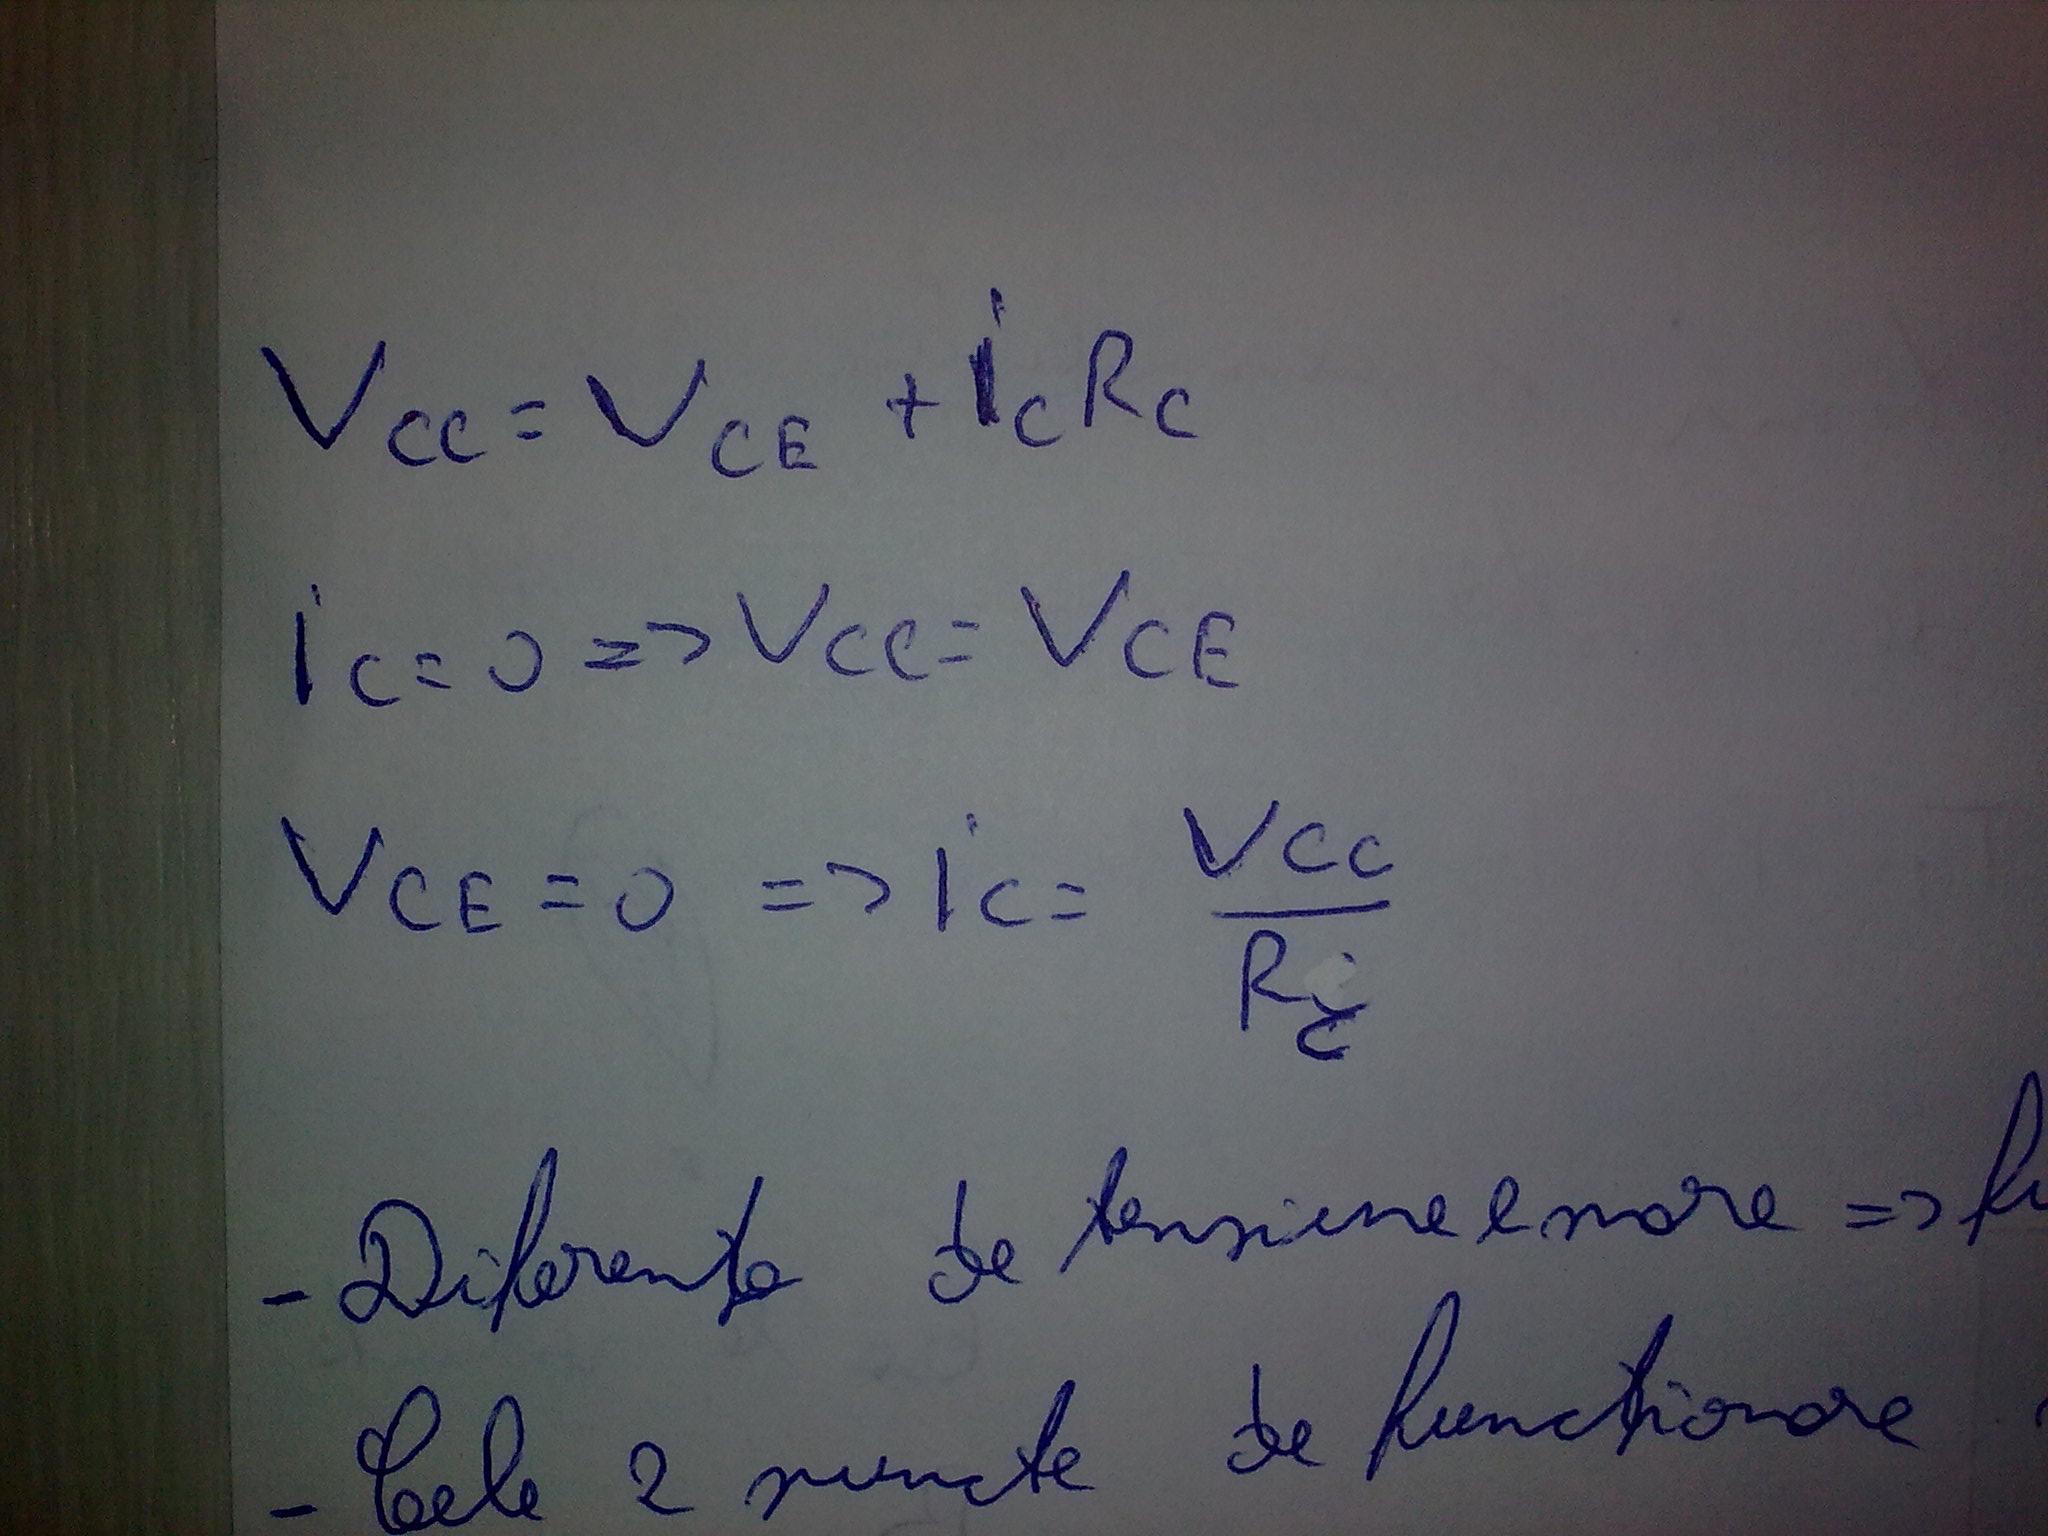 VCC = VCE + iCRC
iC = 0 => VCC = VCE
VCE = 0 => iC = VCC / RC
- Diferența de tensiune e mare =>
- Cele 2 puncte de funcționare